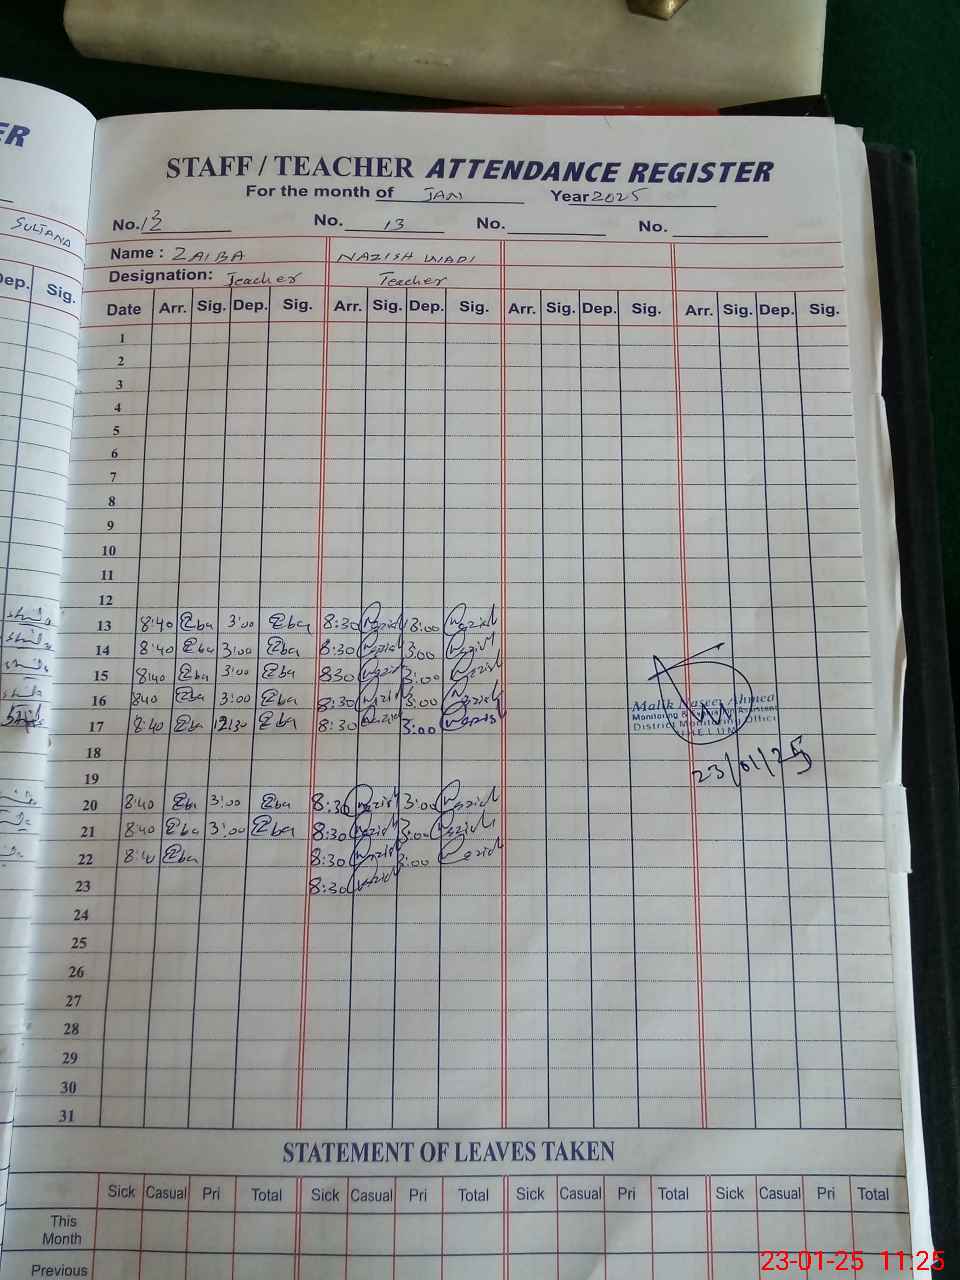 ER
STAFF / TEACHER ATTENDANCE REGISTER
For the month of JAN Year 2025
No. 12 No. 13 No. No.
SULTANA
Name : ZAIBA NAZISH WADI
Designation: Teacher Teacher
Dep. Sig.
Date Arr. Sig. Dep. Sig. Arr. Sig. Dep. Sig. Arr. Sig. Dep. Sig. Arr. Sig. Dep. Sig.
1
2
3
4
5
6
7
8
9
10
11
12
13 8:40 Zba 3:00 Zba 8:30 Nazish 3:00 Nazish
14 8:40 Zba 3:00 Zba 8:30 Nazish 3:00 Nazish
15 8:40 Zba 3:00 Zba 830 Nazish 3:00 Nazish
16 840 Zba 3:00 Zba 8:30 Nazish 3:00 Nazish
17 8:40 Zba 12:30 Zba 8:30 Nazish 3:00 Nazish
Malik Naseer Ahmed
Monitoring & Evaluation Assistant
District Monitoring Office
JHELUM
23/01/25
18
19
20 8:40 Zba 3:00 Zba 8:30 Nazish 3:00 Nazish
21 8:40 Zba 3:00 Zba 8:30 Nazish 3:00 Nazish
22 8:40 Zba 8:30 Nazish 3:00 Nazish
23 8:30 Nazish
24
25
26
27
28
29
30
31
STATEMENT OF LEAVES TAKEN
Sick Casual Pri Total Sick Casual Pri Total Sick Casual Pri Total Sick Casual Pri Total
This
Month
Previous
23-01-25 11:25